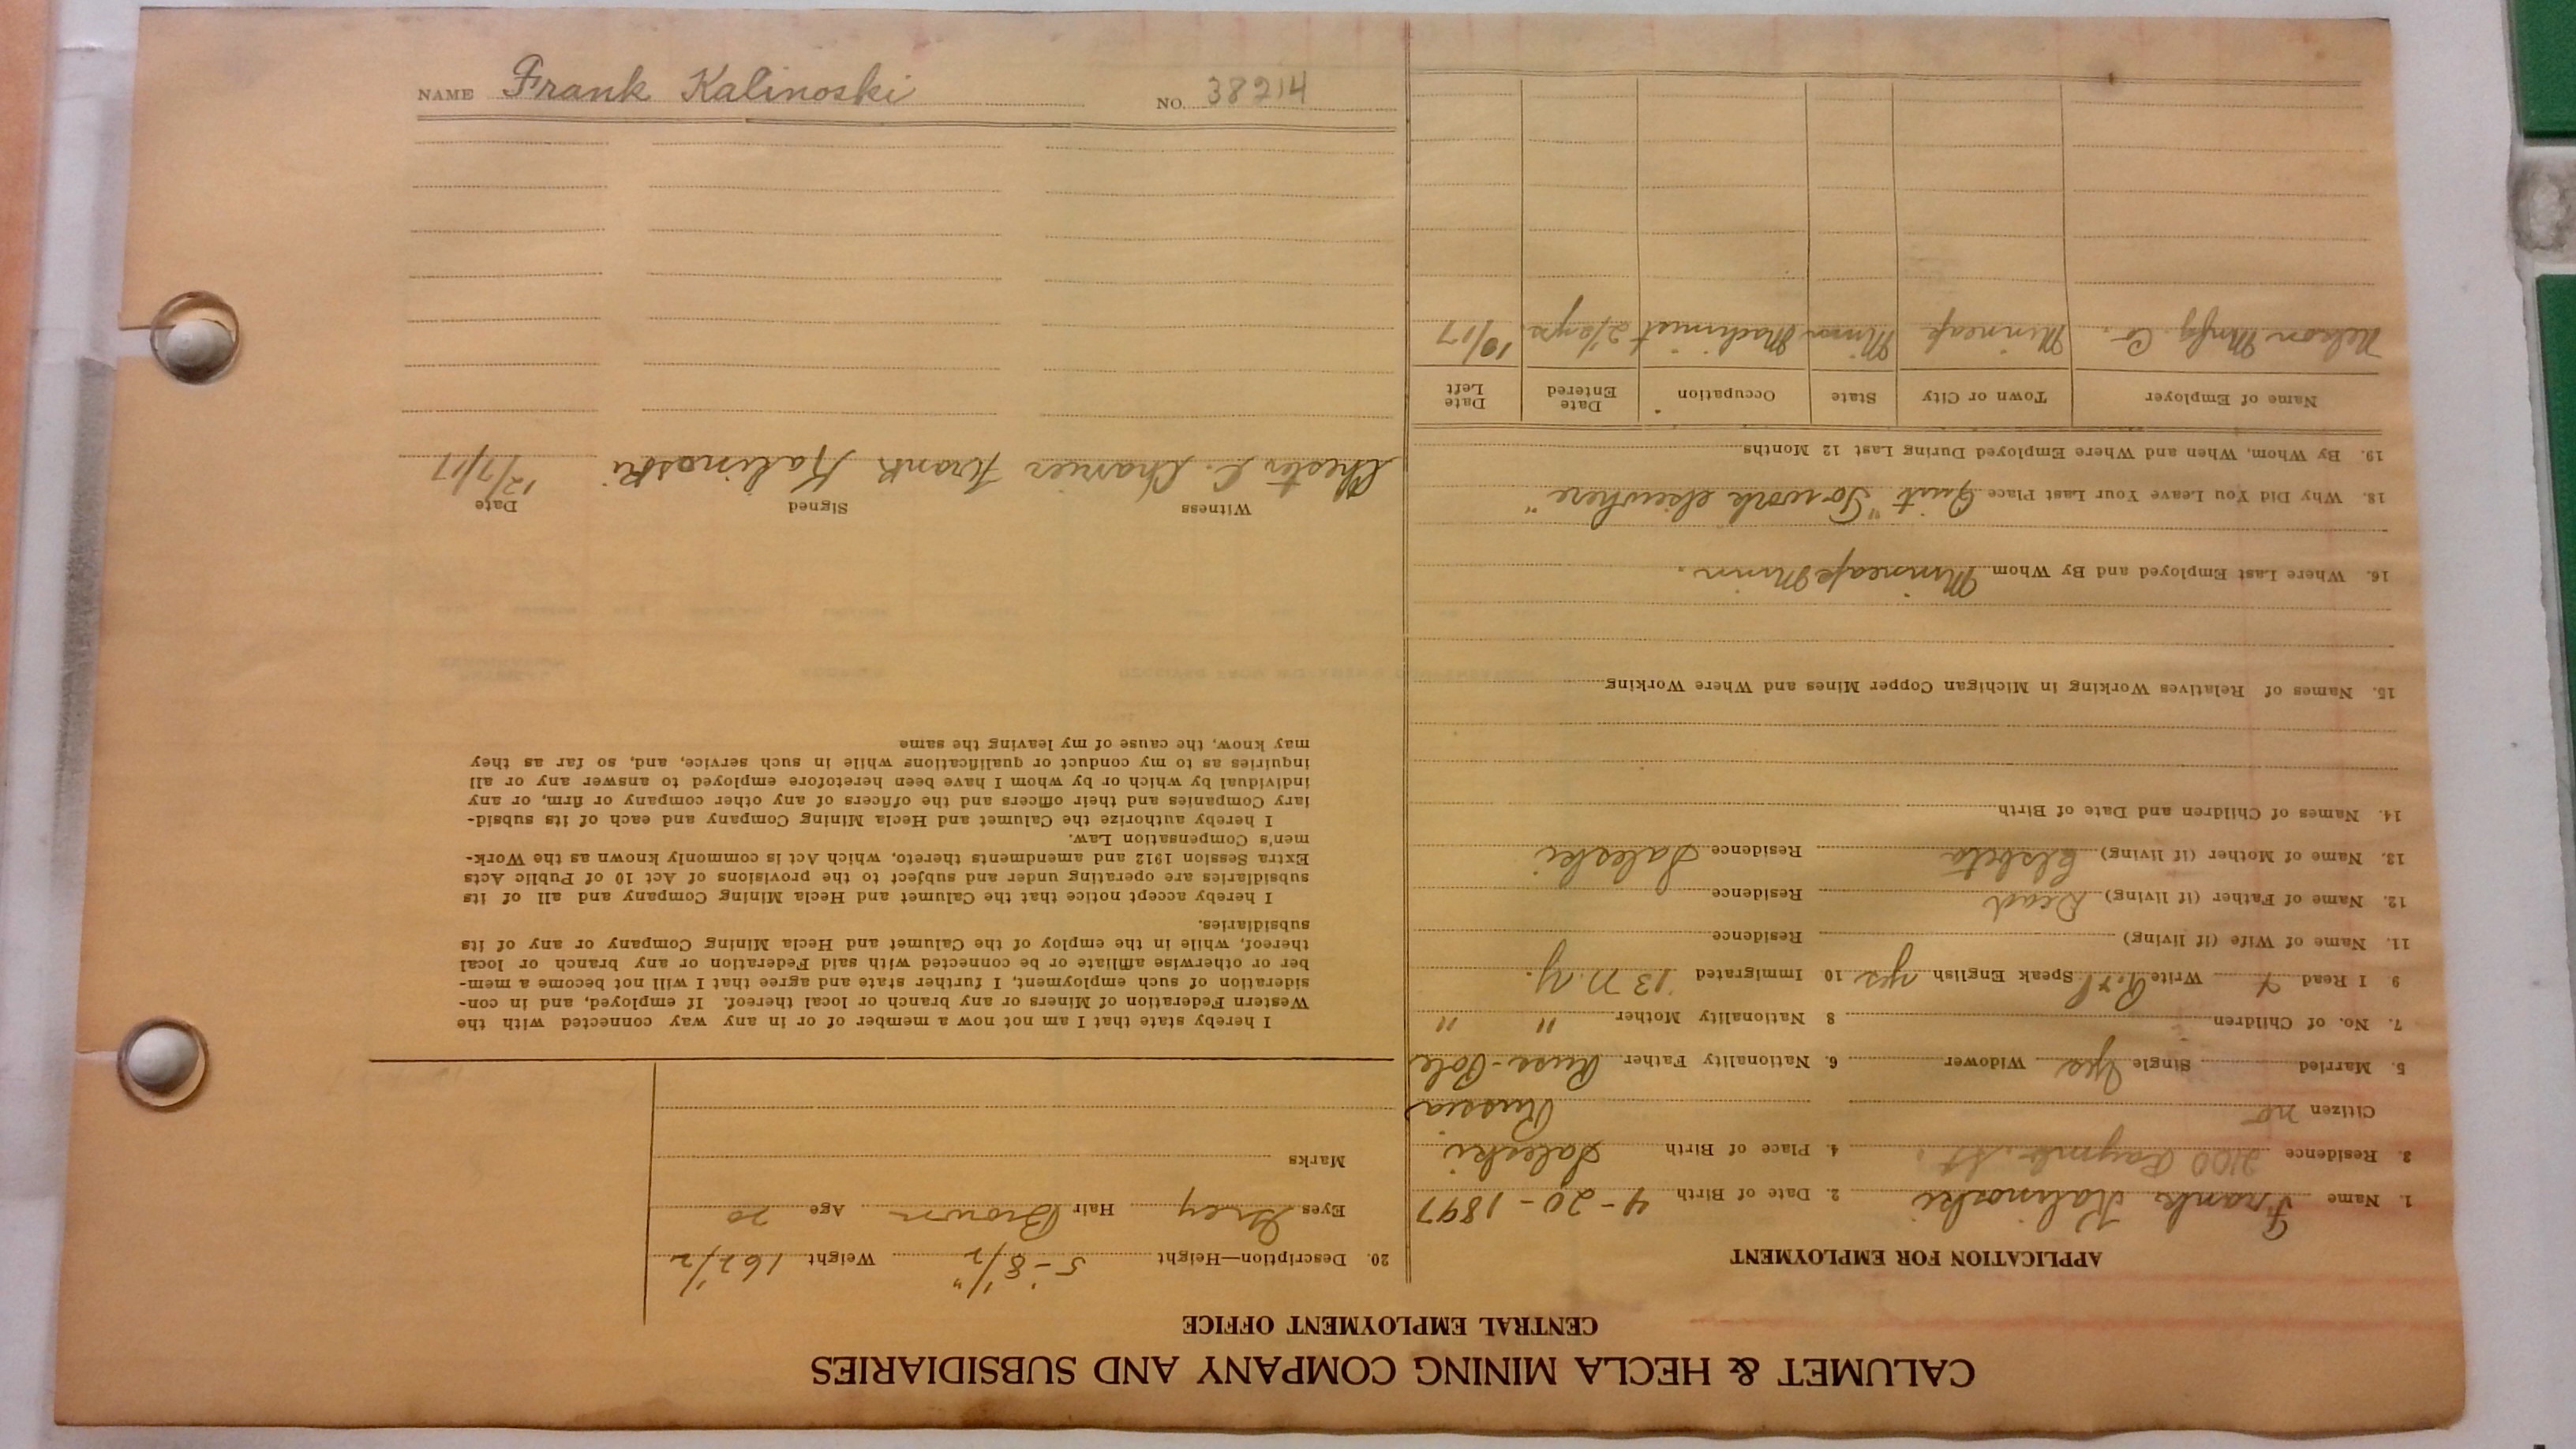 CALUMET & HECLA MINING COMPANY AND SUBSIDIARIES
CENTRAL EMPLOYMENT OFFICE
APPLICATION FOR EMPLOYMENT
1. Name Frank Kalinoski 2. Date of Birth 4-20-1897
3. Residence 2100 St. 4. Place of Birth Saleski
Citizen no Russia
5. Married Single Yes Widower 6. Nationality Father Russ-Pole
7. No. of Children 8 Nationality Mother " "
9 I Read Write Speak English yes 10 Immigrated '13 N.Y.
11. Name of Wife (if living) Residence
12. Name of Father (if living) Dead Residence
13. Name of Mother (if living) Elsbeta Residence Saleski
14. Names of Children and Date of Birth
15. Names of Relatives Working in Michigan Copper Mines and Where Working
16. Where Last Employed and By Whom Minneap Minn.
18. Why Did You Leave Your Last Place Quit "To work elsewhere"
19. By Whom, When and Where Employed During Last 12 Months
Name of Employer Town or City State Occupation Date Entered Date Left
Nelson Mnfg. Co. Minneap Minn Machinist 2 1/2 yrs. 10/17
20. Description—Height 5'-8 1/2" Weight 162 1/2
Eyes Grey Hair Brown Age 20
Marks
I hereby state that I am not now a member of or in any way connected with the
Western Federation of Miners or any branch or local thereof. If employed, and in con-
sideration of such employment, I further state and agree that I will not become a mem-
ber or otherwise affiliate or be connected with said Federation or any branch or local
thereof, while in the employ of the Calumet and Hecla Mining Company or any of its
subsidiaries.
I hereby accept notice that the Calumet and Hecla Mining Company and all of its
subsidiaries are operating under and subject to the provisions of Act 10 of Public Acts
Extra Session 1912 and amendments thereto, which Act is commonly known as the Work-
men's Compensation Law.
I hereby authorize the Calumet and Hecla Mining Company and each of its subsid-
iary Companies and their officers and the officers of any other company or firm, or any
individual by which or by whom I have been heretofore employed to answer any or all
inquiries as to my conduct or qualifications while in such service, and, so far as they
may know, the cause of my leaving the same
Witness Signed Date
Chester C. Frank Kalinoski 12/7/17
NAME Frank Kalinoski NO. 38214